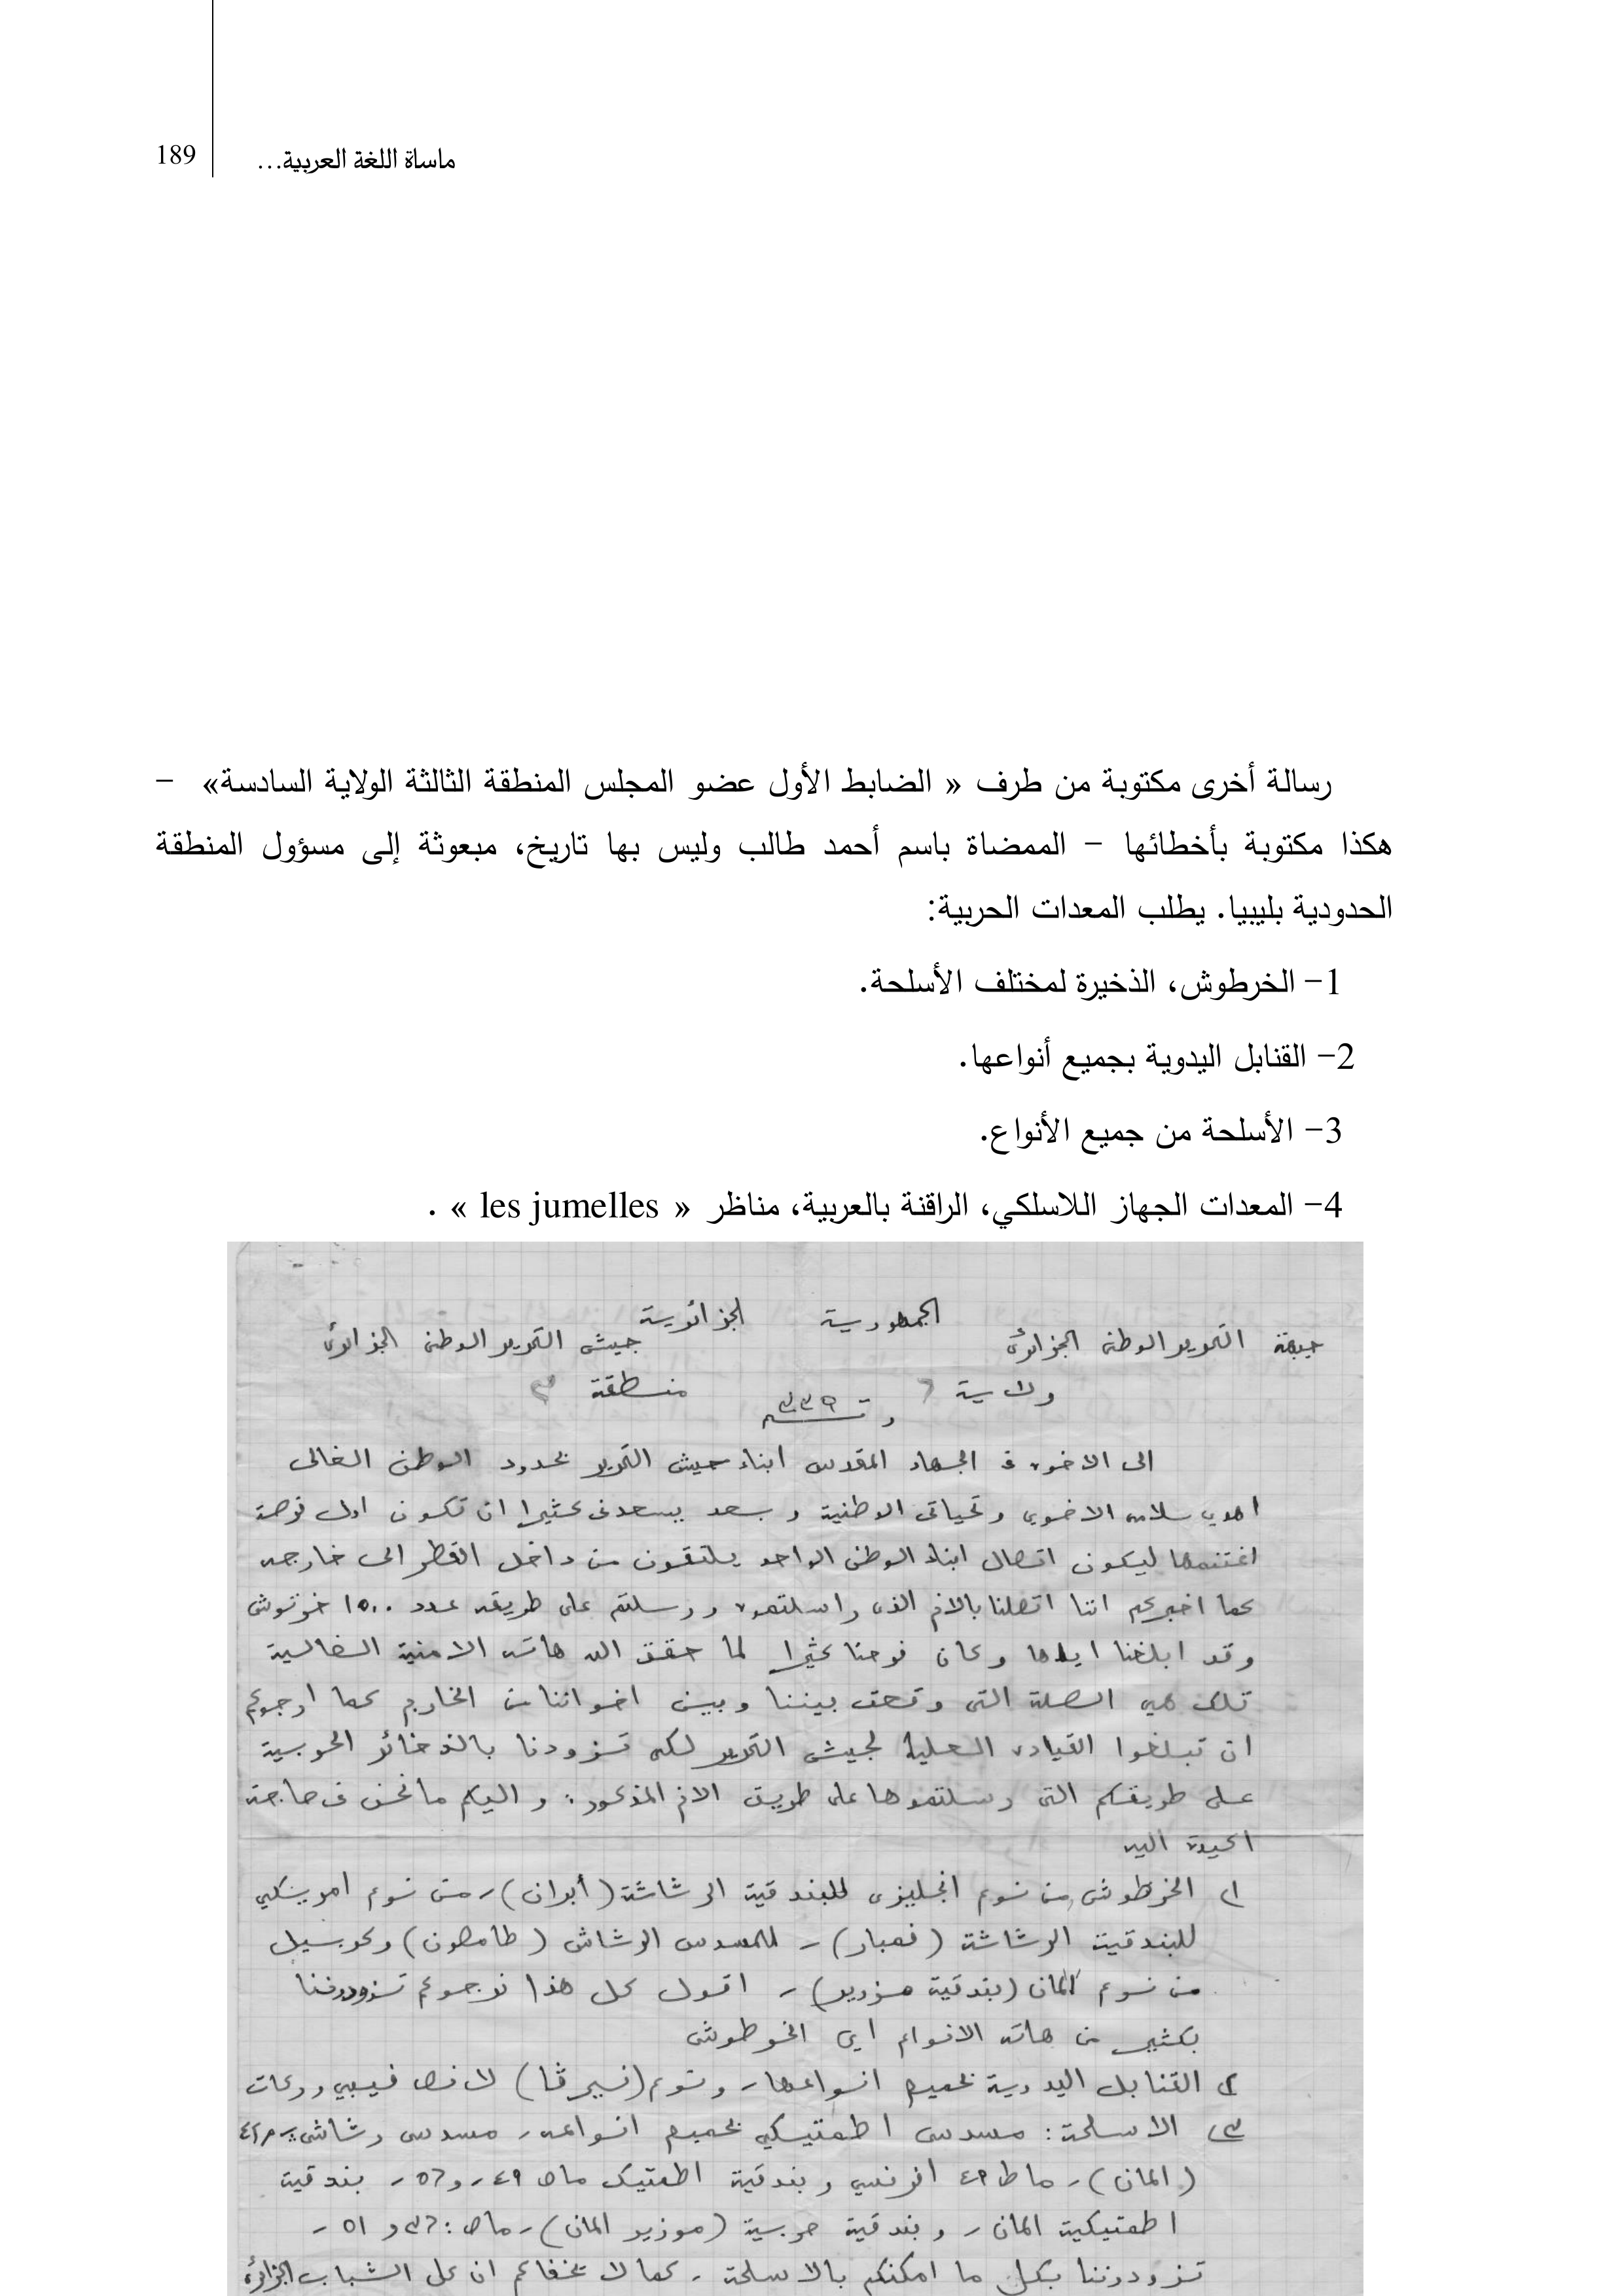 ماساة اللغة العربية...
189
رسالة أخرى مكتوبة من طرف « الضابط الأول عضو المجلس المنطقة الثالثة الولاية السادسة» –
هكذا مكتوبة بأخطائها – الممضاة باسم أحمد طالب وليس بها تاريخ، مبعوثة إلى مسؤول المنطقة
الحدودية بليبيا. يطلب المعدات الحربية:
1– الخرطوش، الذخيرة لمختلف الأسلحة.
2– القنابل اليدوية بجميع أنواعها.
3– الأسلحة من جميع الأنواع.
4– المعدات الجهاز اللاسلكي، الراقنة بالعربية، مناظر « les jumelles » .
الجمهورية الجزائرية
جبهة التحرير الوطنى الجزائرى جيش التحرير الوطنى الجزائرى
ولاية ٦ منطقة ٣
الى الاخوة فى الجهاد المقدس ابناء جيش التحرير بحدود الوطن الغالى
اهدى سلامى الاخوى وتحياتى الوطنية وبعد يسعدنى كثيرا ان تكون اول فرصة
اغتنمها ليكون اتصال ابناء الوطن الواحد يلتقون من داخل القطر الى خارجه
كما اخبركم اننا اتصلنا بالاخ الذى راسلتموه ورسلتم على طريقه عدد ١٥٠٠ خرتوش
وقد ابلغنا اياها وكان فرحنا كثيرا لما حقق الله هاته الامنية الغالية
تلك هى الصلة التى وقعت بيننا وبين اخواننا من الخارج كما ارجوكم
ان تبلغوا القيادة العليا لجيش التحرير لكى تزودنا بالذخائر الحربية
على طريقكم التى رسلتموها على طريق الاخ المذكور: واليكم ما نحن فى حاجة
اكيدة اليه
١) الخرطوش من نوع انجليزى للبندقية الرشاشة (أبران) - من نوع امريكى
للبندقية الرشاشة - للمسدس الرشاش (طامصون)
من نوع المان (بندقية موزير) - اقول كل هذا نرجوكم تزودوننا
بكثير من هاته الانواع اى الخرطوش
٢) القنابل اليدوية بجميع انواعها
٣) الاسلحة: مسدس اطمتيكى بجميع انواعه - مسدس رشاش
(المان) - ماط ٤٩ افرنسى وبندقية اطمتيك ماص ٤٩ - و ٥٦ - بندقية
اطمتيكية المان - وبندقية حربية (موزير المان) - ماص: ٣٦ و ٥١ -
تزودوننا بكل ما امكنكم بالاسلحة - كما لا يخفاكم ان كل الشباب الجزائرى